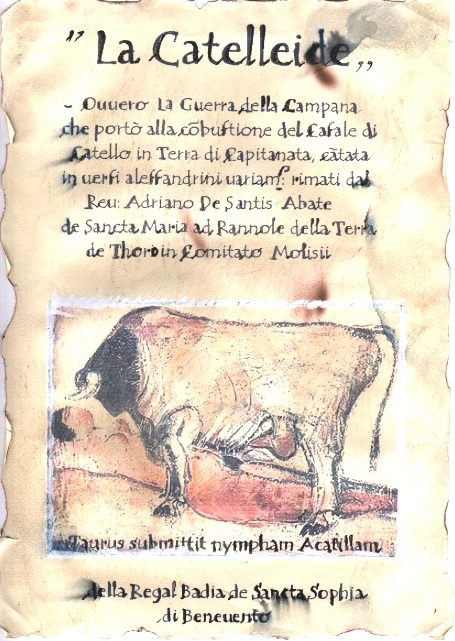 " La Catelleide „
- Ouuero La Guerra della Campana
che portò alla cõbustione del Casale di
Catello in Terra di Capitanata, cãtata
in uersi alessandrini uariam.e rimati dal
Reu: Adriano De Santis Abate
de Sancta Maria ad Rannole della Terra
de Thoro in Comitato Molisii
Taurus submittit nympham Acatillam
della Regal Badia de Sancta Sophia
di Beneuento